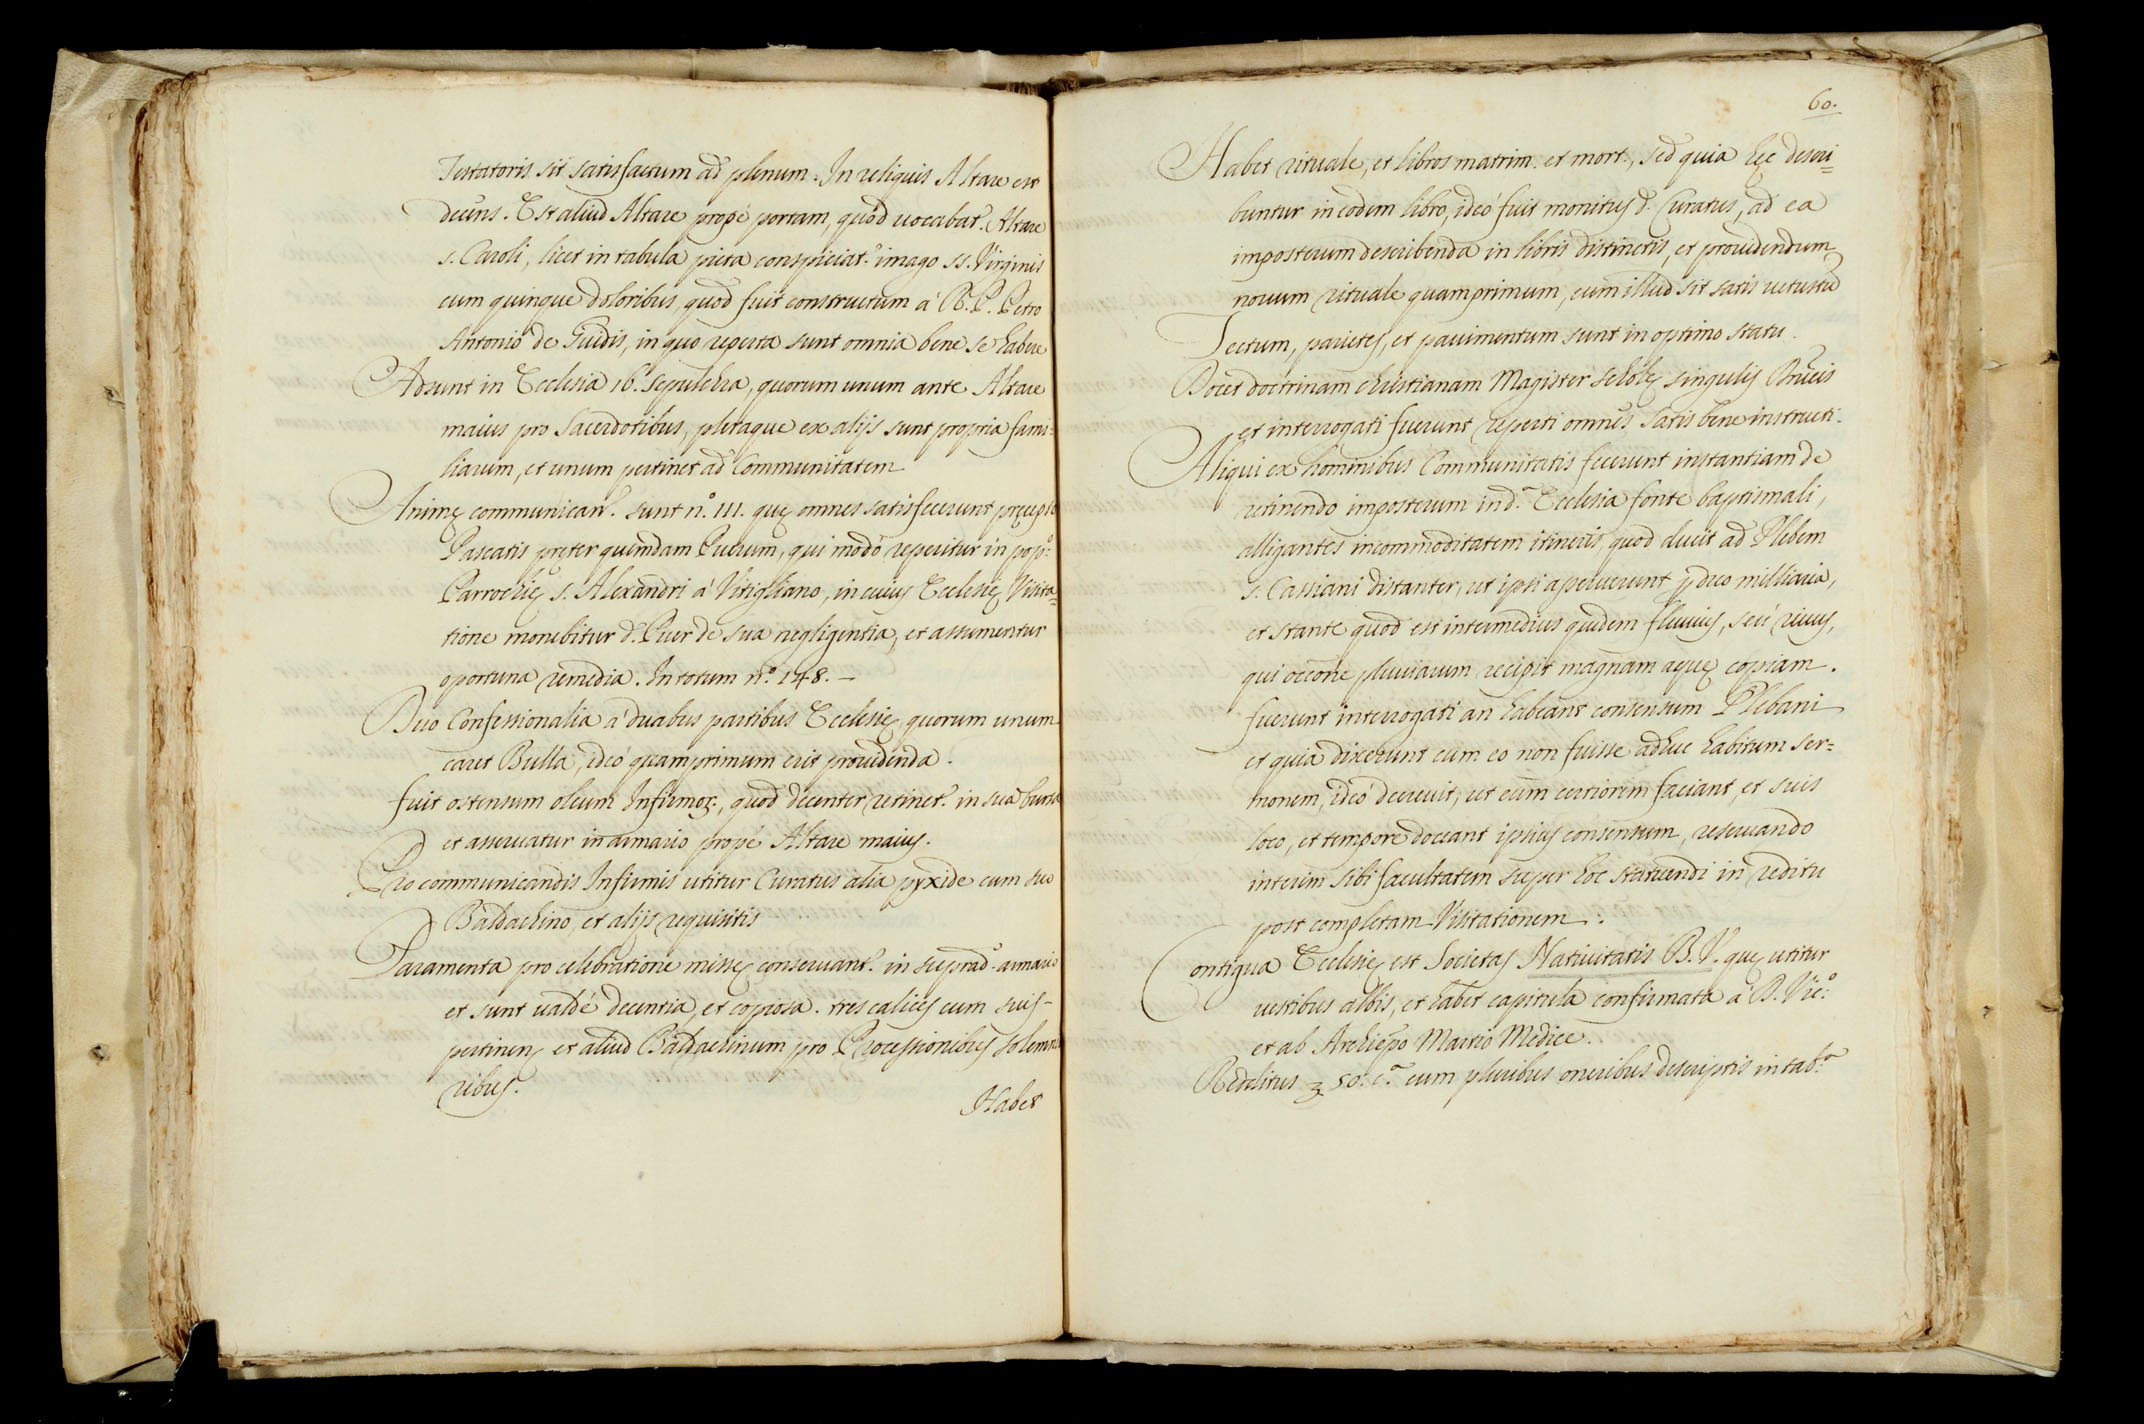 Testatoris sit satisfactum ad plenum. In reliquis Altare est
decens. Est aliud Altare propè portam, quod uocabat.r Altare
s. Caroli, licet in tabula picta conspiciat.r imago ss. Virginis
cum quinque doloribus, quod fuit constructum à R. P. Petro
Antonio de Guidis, in quo reperta sunt omnia bene se habere
Adsunt in Ecclesia 16. sepulchra, quorum unum ante Altare
maius pro Sacerdotibus, pleraque ex alijs sunt propria fami=
liarum, et unum pertinet ad Communitatem
Animę communican. sunt n.o 111. quę omnes satisfecerunt pręcepto
Pascatis pręter quemdam Puerum, qui modò reperitur in pop.o
Parrochię s. Alexandri à Vitigliano, in cuius Ecclesię Visita=
tione monebitur d. Puer de sua negligentia, et assumentur
oportuna remedia. In totum n.o 148. —
Duo Confessionalia à duabus partibus Ecclesię, quorum unum
caret Bulla, ideò quamprimum erit prouidenda.
fuit ostensum oleum Infirmoꝝ, quod decenter retinet.r in sua bursa
et asseruatur in armario propè Altare maius.
Pro communicandis Infirmis utitur Curatus alia pyxide cum suo
Baldachino, et alijs requisitis
Paramenta pro celebratione missę conseruant.r in suprad.o armario
et sunt ualdè decentia, et copiosa. tres calices cum suis
pertinen, et aliud Baldachinum pro Processionibus solemni
ribus.
Habet
60.
Habet rituale, et libros matrim. et mort., sed quia hęc descri=
buntur in eodem libro, ideò fuit monitus d. Curatus, ad ea
imposterum describenda in libris distinctis, et prouidendum
nouum rituale quamprimum, cum illud sit satis uetustũ
Tectum, parietes, et pauimentum sunt in optimo statu.
Docet doctrinam christianam Magister scholę singulis Dñicis
et interrogati fuerunt reperti omnes satis bene instructi.
Aliqui ex hominibus Communitatis fecerunt instantiam de
retinendo imposterum in d.a Ecclesia fonte baptismali,
alligantes incommoditatem itineris, quod ducit ad Plebem
s. Cassiani distanter, ut ipsi asseruerunt, p duo milliaria,
et stante quod est intermedius quidem fluuius, seu riuus,
qui occõne pluuiarum recipit magnam aquę copiam.
fuerunt interrogati an habeant consensum Plebani
et quia dixerunt cum eo non fuisse adhuc habitum ser=
monem, ideò decreuit, ut eum certiorem faciant, et suis
loco, et tempore doceant ipsius consensum, reseruando
interim sibi facultatem super hoc statuendi in reditu
post completam Visitationem.
Contigua Ecclesię est Societas Natiuitatis B. V. quę utitur
uestibus albis, et habet capitula confirmata à D. Vic.o
et ab Archiepõ Mario Medice.
Redditus ꝫ 50. c.a cum pluribus oneribus descriptis in tab.a